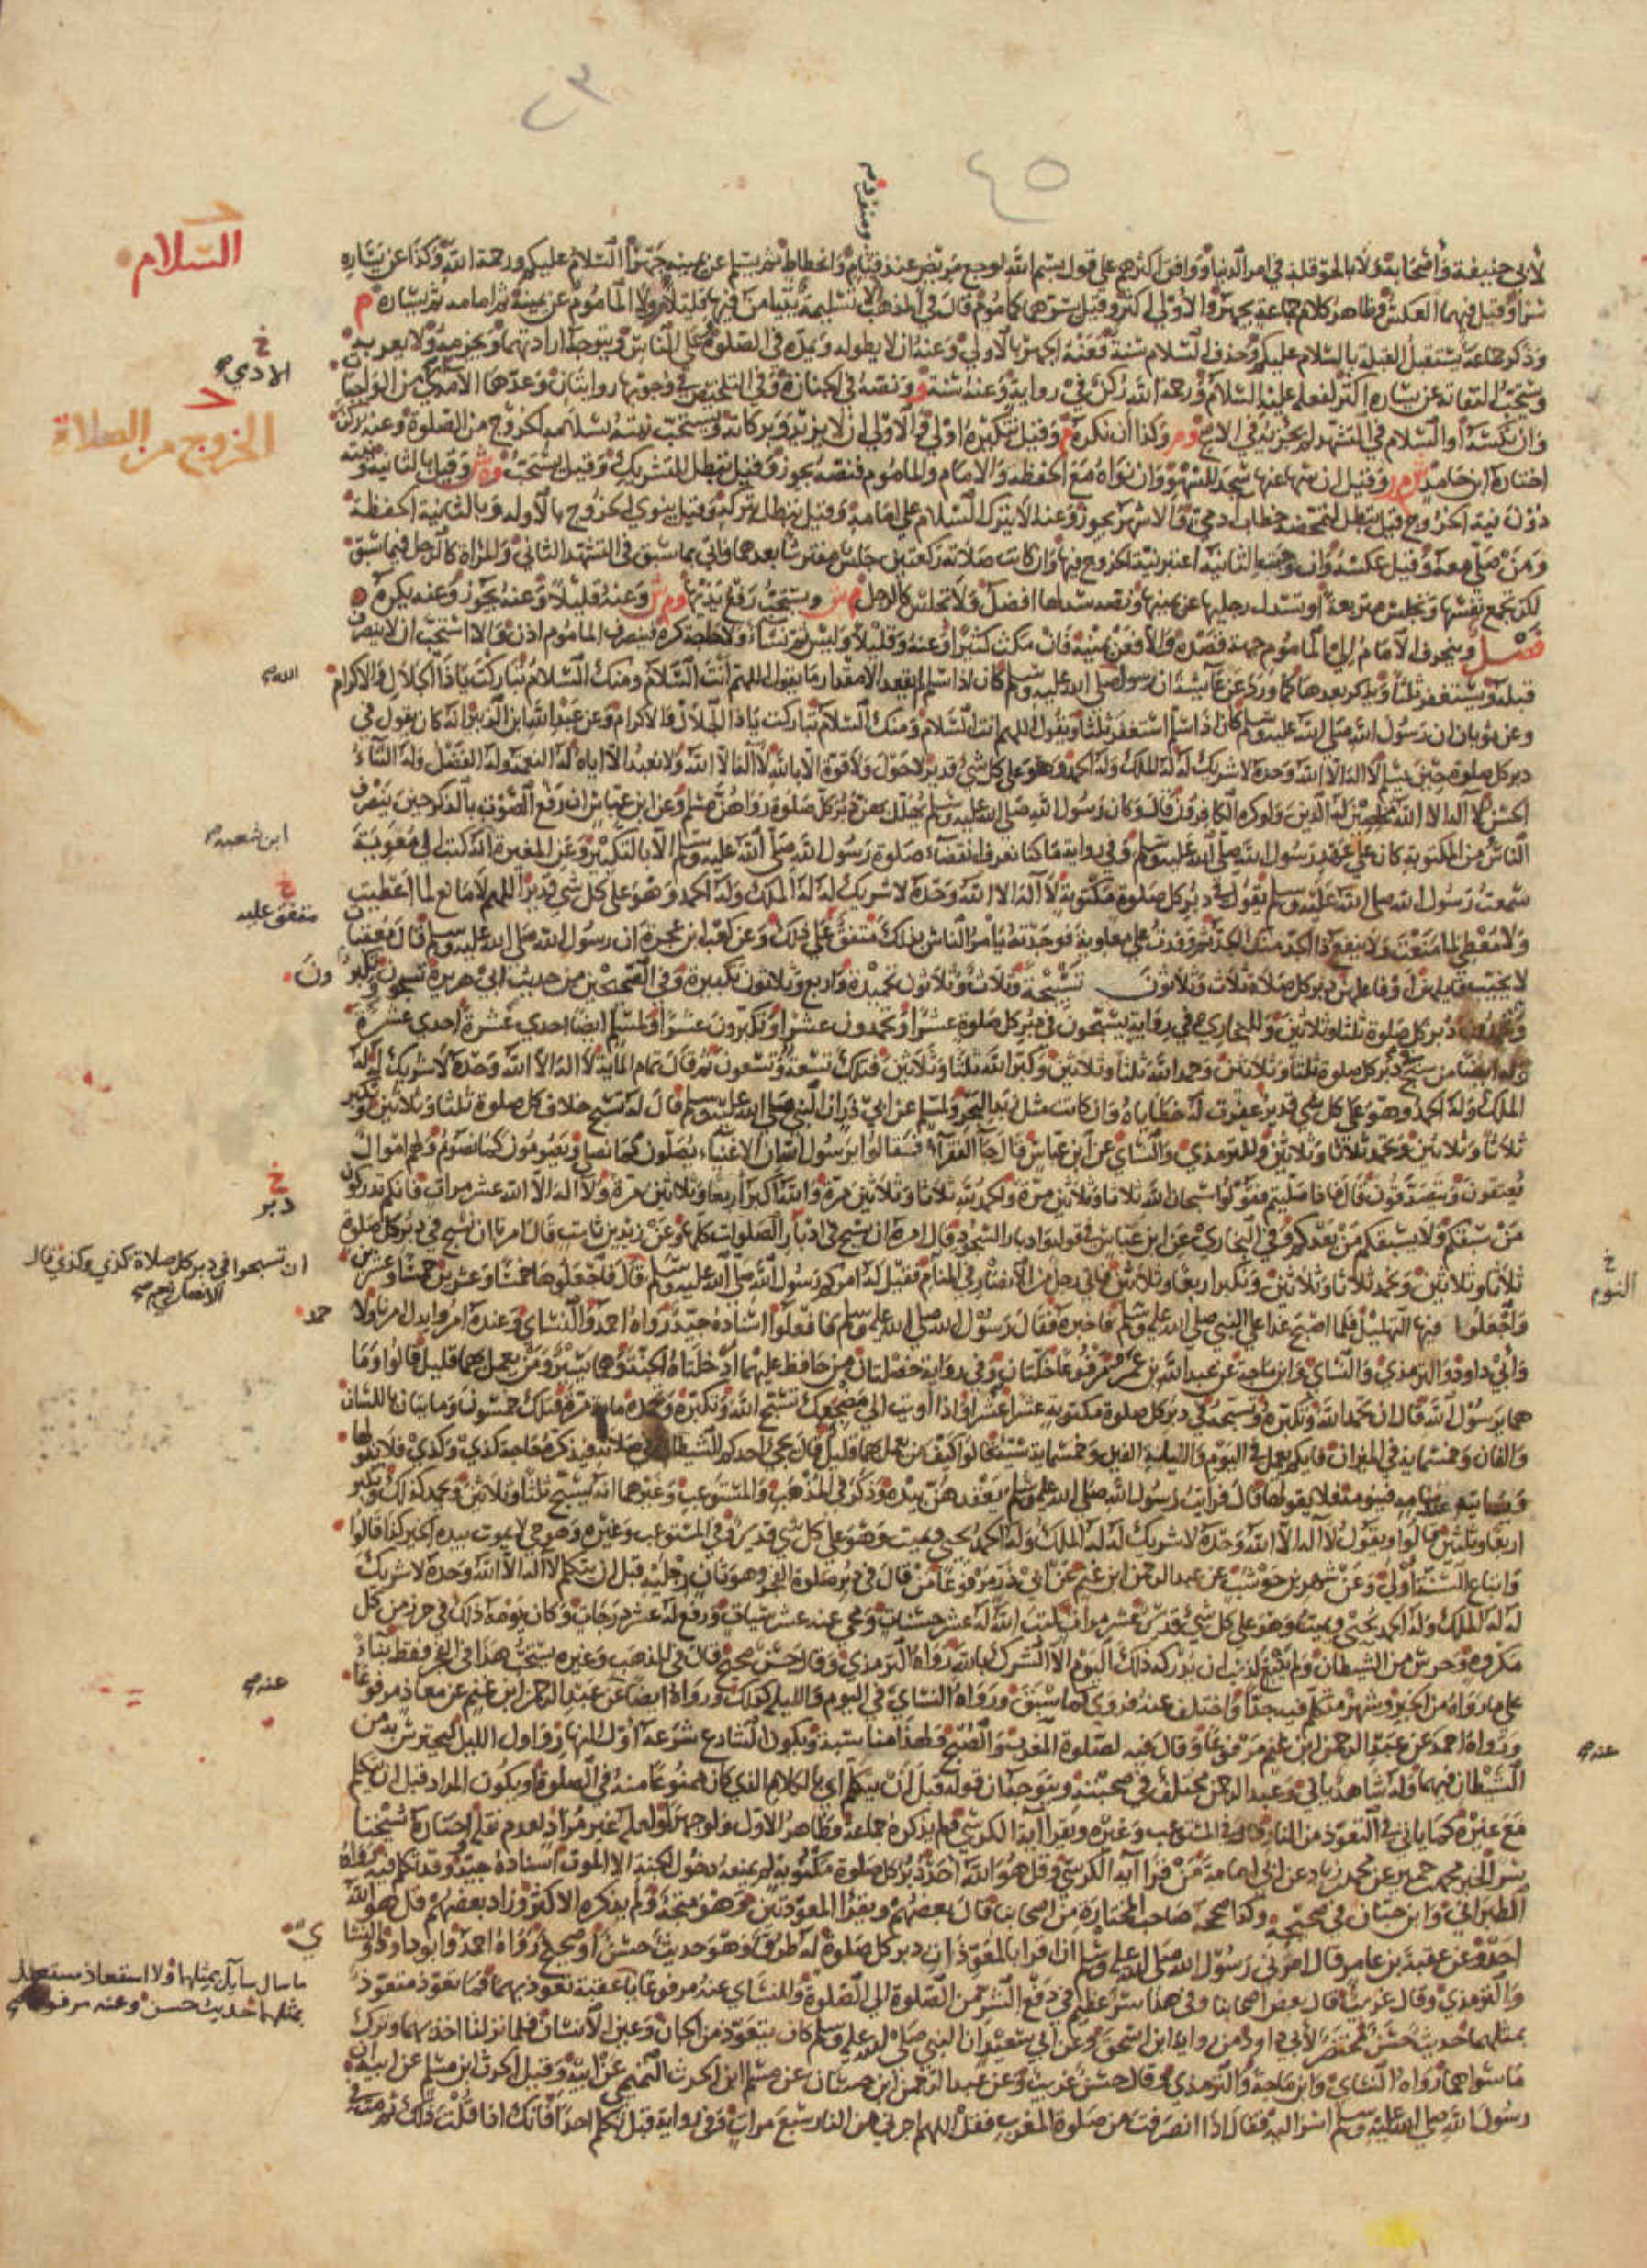 ٢٣
٤٥
السلام
لأبي حنيفة وأصحابه ولا بالحوقلة في امر الدنيا ووافق اكثرهم على قول بسم الله لوجع مريض عند قيام وانحطاط ثم يسلم عن يمينه جهرا السلام عليكم ورحمة الله وكذا عن يساره
سرا وقيل فيهما العكس وظاهر كلام جماعة يجهر والاولى اكثر وقيل يسرهما كماموم قال في المذهب
وذكر جماعة يستقبل القبلة بالسلام عليكم وحذف السلام سنة فعنه الجهر بالاولى وعنه ان لا يطوله ويمده في الصلوة وعلى الناس ويتوجه ارادتهما ويجزمه ولا يعربه
الآدمي
ويستحب التفاته عن يساره اكثر لفعله عليه السلام ورحمة الله ركن في رواية وعنه سنة ونصه في الجنازة وفي التلخيص في وجوبها روايتان وعدها الآمدي من الواجبات
الخروج من الصلاة
وان نكسه او السلام في التشهد لم يجزيه في الاصح وكذا ان نكره وقيل تنكيره اولى والاولى ان لا يزيد وبركاته ويستحب نيته بسلامه الخروج من الصلوة وعنه ركن
اختاره ابن حامد وقيل ان سها عنها سجد للسهو وان نواه مع الحفظة والامام والماموم فنصه يجوز وقيل تبطل للتشريك وقيل يستحب وقيل بالثانية
دون نية الخروج قيل تبطل لتمحضه خطاب ادمي والاشهر يجوز وعنه لا يترك السلام على امامه وقيل تبطل بتركه وقيل ينوي الخروج بالاولة وبالثانية الحفظة
ومن صلى معه وقيل عكسه وان وجبت الثانية اعتبر نية الخروج فيها وان كانت صلاته ركعتين جلس مفترشا بعدهما واتى بما سبق في التشهد الثاني والمراة كالرجل فيما سبق
لكن تجمع نفسها وتجلس متربعة او تسدل رجليها عن يمينها ونصه سدلها افضل ولا تجلس كالرجل ويستحب رفع يديها وعنه قليلا وعنه يجوز وعنه يكره
فصل وينحرف الامام الى الماموم جهة قصده والا فعن يمينه فان مكث كثيرا وعنه وقليلا وليس ثم نساء ولا حاجة كره فينصرف الماموم اذن والا استحب ان لا ينصرف
الله
قبله ويستغفر ثلثا ويذكر بعدها كما ورد عن عائشة ان رسول صلى الله عليه وسلم كان اذا سلم لم يقعد الا مقدار ما يقول اللهم انت السلام ومنك السلام تباركت يا ذا الجلال والاكرام
وعن ثوبان ان رسول الله صلى الله عليه وسلم كان اذا سلم استغفر ثلثا ويقول اللهم انت السلام ومنك السلام تباركت يا ذا الجلال والاكرام وعن عبد الله ابن الزبير انه كان يقول في
دبر كل صلوة حين يسلم لا اله الا الله وحده لا شريك له له الملك وله الحمد وهو على كل شئ قدير لا حول ولا قوة الا بالله لا اله الا الله ولا نعبد الا اياه له النعمة وله الفضل وله الثناء
الحسن لا اله الا الله مخلصين له الدين ولو كره الكافرون قال وكان رسول الله صلى الله عليه وسلم يهلل بهن دبر كل صلوة رواهن مسلم وعن ابن عباس ان رفع الصوت بالذكر حين ينصرف
ابن شعبة
الناس من المكتوبة كان على عهد رسول الله صلى الله عليه وسلم وفي رواية ما كنا نعرف انقضاء صلوة رسول الله صلى الله عليه وسلم الا بالتكبير وعن المغيرة انه كتب الى معوية
سمعت رسول الله صلى الله عليه وسلم يقول في دبر كل صلوة مكتوبة لا اله الا الله وحده لا شريك له له الملك وله الحمد وهو على كل شي قدير اللهم لا مانع لما اعطيت
متفق عليه
ولا معطي لما منعت ولا ينفع ذا الجد منك الجد ثم وفدت على معاوية فوجدته يامر الناس بذلك متفق على ذلك وعن كعب ابن عجرة ان رسول الله صلى الله عليه وسلم قال معقبات
لا يخيب قايلهن او فاعلهن دبر كل صلاة ثلاث وثلاثون تسبيحة وثلاث وثلاثون تحميدة واربع وثلاثون تكبيرة وفي الصحيحين من حديث ابي هريرة تسبحون وتكبرون
وتحمدون دبر كل صلوة ثلثا وثلاثين وللبخاري في رواية يسبحون في دبر كل صلوة عشرا ويحمدون عشرا وتكبرون عشرا ولمسلم ايضا احدي عشرة احدي عشرة
وله ايضا من سبح دبر كل صلوة ثلثا وثلاثين وحمد الله ثلثا وثلاثين وكبر الله ثلثا وثلاثين فتلك تسعة وتسعون ثم قال تمام الماية لا اله الا الله وحده لا شريك له له
الملك وله الحمد وهو على كل شي قدير غفرت له خطاياه وان كانت مثل زبد البحر ولمسلم عن ابي ذر ان النبي صلى الله عليه وسلم قال له تسبح خلاف كل صلوة ثلثا وثلاثين وتكبر
ثلاثا وثلاثين وتحمد ثلاثا وثلاثين وللترمذي والنساي عن ابن عباس قال جآ الفقراء فقالوا يرسول الله ان الاغنياء يصلون كما نصلي ويصومون كما نصوم ولهم اموال
دبر
يعتقون ويتصدقون قال فاذا صليتم فقولوا سبحان الله ثلاثا وثلاثين مرة والحمد لله ثلاثا وثلاثين مرة والله اكبر اربعا وثلاثين مرة ولا اله الا الله عشر مرات فانكم تدركون
من سبقكم ولا يسبقكم من بعدكم وفي البخاري عن ابن عباس في قوله وادبار السجود قال امره ان يسبح في ادبار الصلوات كلها وعن زيد بن ثابت قال امرنا ان نسبح في دبر كل صلوة
ان تسبحوا في دبر كل صلاة كذي وكذي قال الانصاري نعم
النوم
ثلاثا وثلاثين ونحمد ثلاثا وثلاثين ونكبر اربعا وثلاثين فاتي رجل من الانصار في المنام فقيل له امركم رسول الله صلى الله عليه وسلم قال فاجعلوها خمسا وعشرين خمسا وعشرين
واجعلوا فيها التهليل فلما اصبح غدا على النبي صلى الله عليه وسلم فاخبره فقال رسول الله صلى الله عليه وسلم فافعلوا اسناده جيد رواه احمد والنساي وعنده امروا بدل امرنا ولا حمد
وابي داود والترمذي والنساي وابن ماجة عن عبد الله بن عمر مرفوعا خلتان وفي رواية خصلتان من حافظ عليهما ادخلتاه الجنة وهما يسير ومن يعمل بهما قليل قالوا وما
هما يرسول الله قال ان تحمد الله وتكبره وتسبحه في دبر كل صلوة مكتوبة عشرا عشرا واذا اويت الى مضجعك تسبح الله وتكبره وتحمده ماية مرة فتلك خمسون وما يتان باللسان
والفان وخمسماية في الميزان فايكم يعمل في اليوم والليلة الفين وخمسماية سيئة قالوا كيف من يعمل بهما قليل قال يجي احدكم الشيطان في صلاته فيذكره حاجة كذي وكذي فلا يقولها
وياتيه عند منامه فينومه فلا يقولها قال فرايت رسول الله صلى الله عليه وسلم يعقدهن بيده وذكر في المذهب والمستوعب وغيرهما انه يسبح ثلثا وثلاثين ويحمد كذلك ويكبر
اربعا وثلثين قالوا ويقول لا اله الا الله وحده لا شريك له له الملك وله الحمد يحيي ويميت وهو على كل شي قدير وفي المستوعب وغيره وهو حي لا يموت بيده الخير كذا قالوا
واتباع السنة اولى وعن شهر بن حوشب عن عبد الرحمن ابن غنم عن ابي ذر مرفوعا من قال في دبر صلوة الفجر وهو ثان رجليه قبل ان يتكلم لا اله الا الله وحده لا شريك
له له الملك وله الحمد يحيي ويميت وهو على كل شي قدير عشر مرات كتب الله له عشر حسنات ومحي عنه عشر سيات ورفع له عشر درجات وكان يومه ذلك في حرز من كل
مكروه وحرس من الشيطان ولم ينبغ لذنب ان يدركه ذلك اليوم الا الشرك بالله رواه الترمذي وقال حسن صحيح قال في المذهب وغيره يستحب هذا في الفجر فقط بناء
عنه
على ما رواه من الخبر وشهر متكلم فيه جدا واختلف عنه فروي كما سبق ورواه النساي في اليوم والليلة كذلك ورواه ايضا عن عبد الرحمن ابن غنم عن معاذ مرفوعا
عنه
ورواه احمد عن عبد الرحمن ابن غنم مرفوعا وقال فيه لصلوة المغرب والصبح ولهذا مناسبة ويكون الشارع شرعه اول النهار واول الليل ليحترس به من
الشيطان فيهما وله شاهد ياتي وعبد الرحمن مختلف في صحبته ويتوجه ان قوله قبل ان يتكلم اي بالكلام الذي كان ممنوعا منه في الصلوة او يكون المراد قبل ان يتكلم
مع غيره كما ياتي في التعوذ من النار قال في المستوعب وغيره ويقرا آية الكرسي ولم يذكره جماعة وظاهر الاول ولو جهرا ولعله غير مراد لعدم نقله اختاره شيخنا
سر الخبر محمد بن حمير عن محمد بن زياد عن ابي امامة من قرا آية الكرسي وقل هو الله احد دبر كل صلوة مكتوبة لم يمنعه دخول الجنة الا الموت اسناده جيد وقد تكلم فيه رواه
الطبراني وابن حبان في صحيحه وكذا صححه صاحب المختارة من اصحابنا قال بعضهم ويقرا المعوذتين وهو متجه ولم يذكره الاكثر وزاد بعضهم قل هو الله
احد وعن عقبة بن عامر قال امرني رسول الله صلى الله عليه وسلم ان اقرا بالمعوذات دبر كل صلوة له طرق وهو حديث حسن او صحيح رواه احمد وابو داود والنساي
ما سال سايل بمثلهما ولا استعاذ مستعيذ بمثلهما حديث حسن وعنه مرفوعا
والترمذي وقال غريب قال بعض اصحابنا وفي هذا سر عظيم في دفع الشر من الصلوة الى الصلوة وللنساي عنه مرفوعا يا عقبة تعوذ بهما فما تعوذ متعوذ
بمثلهما حديث حسن مختصر لابي داود من رواية ابن اسحق وعن ابي سعيد ان النبي صلى الله عليه وسلم كان يتعوذ من الجان وعين الانسان فلما نزلتا اخذ بهما وترك
ما سواهما رواه النساي وابن ماجة والترمذي وقال حسن غريب وعن عبد الرحمن ابن حسان عن مسلم ابن الحرث التميمي عن ابيه وقيل الحرث ابن مسلم عن ابيه ان
رسول الله صلى الله عليه وسلم اسر اليه فقال اذا انصرفت من صلوة المغرب فقل اللهم اجرني من النار سبع مرات وفي رواية قبل ان تكلم احدا فانك اذا قلت ذلك ثم مت في